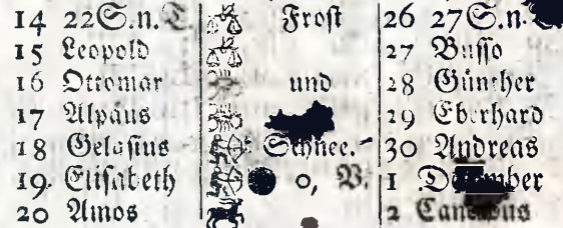 14 22 S. n. T. Frost 26 27 S. n.
15 Leopold 27 Busso
16 Ottomar und 28 Günther
17 Alpäus 29 Eberhard
18 Gelasius Schnee. 30 Andreas
19 Elisabeth 0, V. 1
20 Amos 2